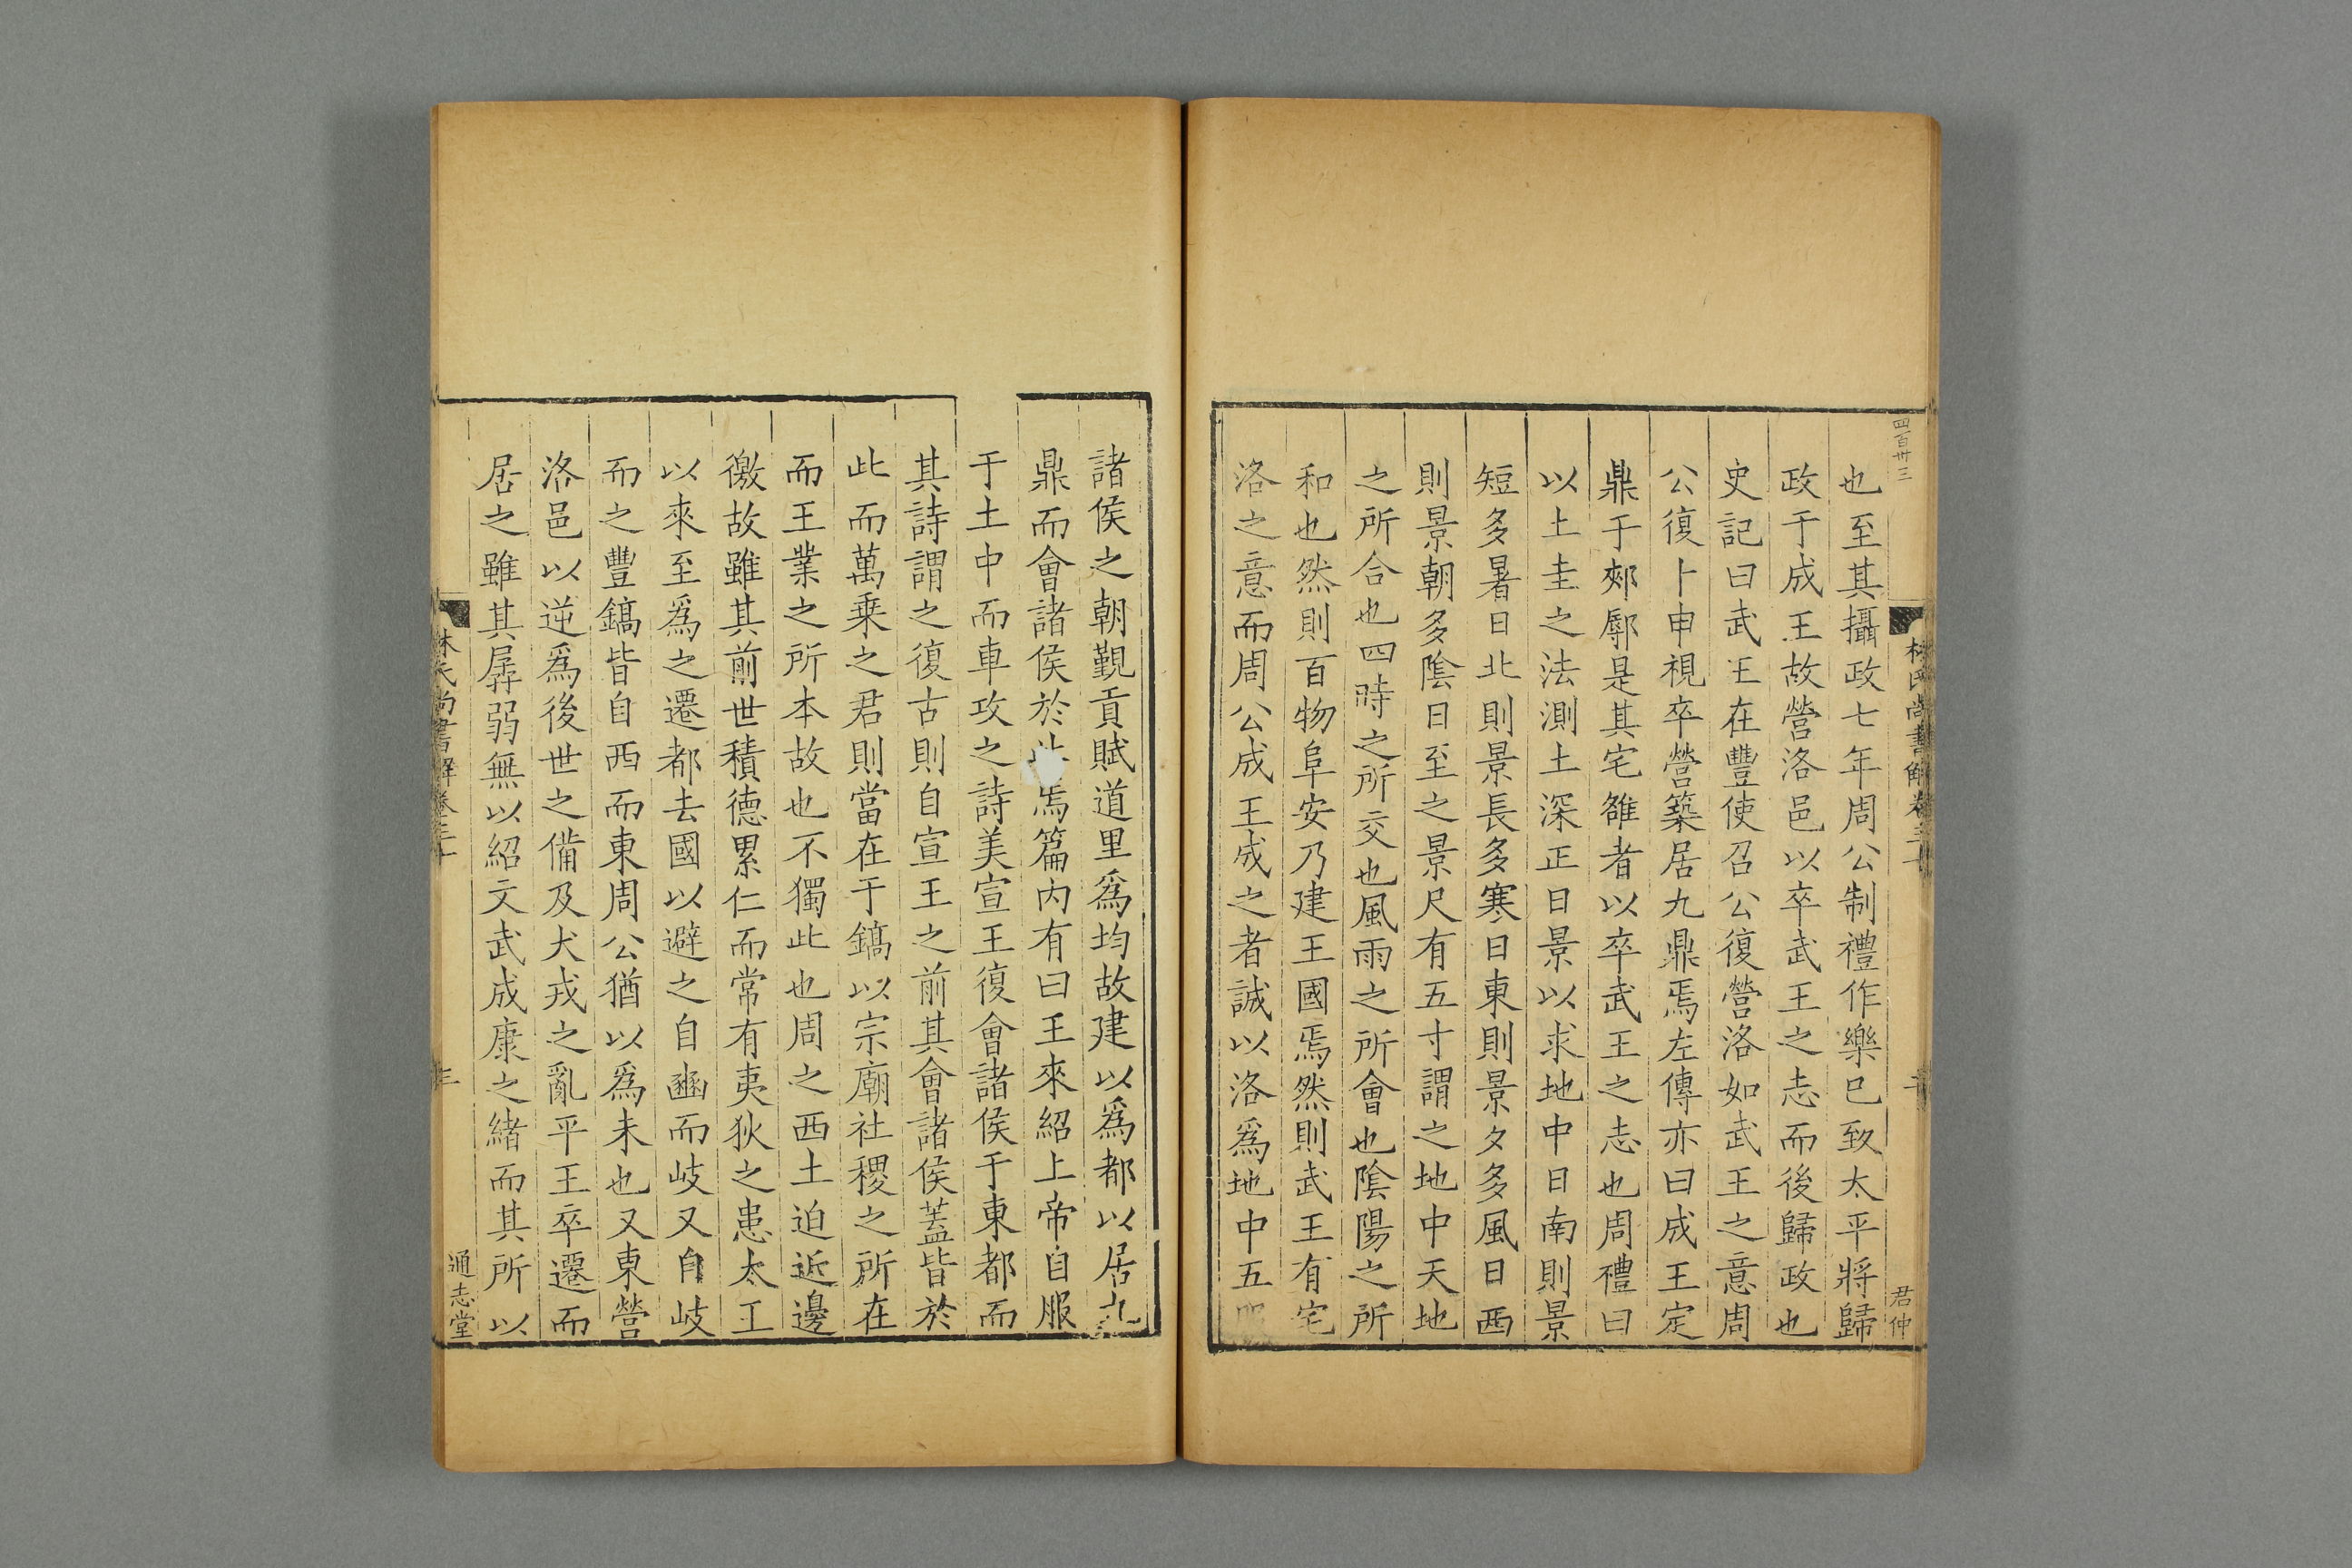 四百卅三
林氏尚書解卷三十
君仲
也至其攝政七年周公制禮作樂巳致太平將歸
政于成王故營洛邑以卒武王之志而後歸政也
史記曰武王在豐使召公復營洛如武王之意周
公復卜申視卒營築居九鼎焉左傳亦曰成王定
鼎于郟鄏是其宅雒者以卒武王之志也周禮曰
以土圭之法測土深正日景以求地中日南則景
短多暑日北則景長多寒日東則景夕多風日西
則景朝多陰日至之景尺有五寸謂之地中天地
之所合也四時之所交也風雨之所會也陰陽之所
和也然則百物阜安乃建王國焉然則武王有宅
洛之意而周公成王成之者誠以洛為地中五服
諸侯之朝覲貢賦道里爲均故建以爲都以居九
鼎而會諸侯於焉篇内有曰王來紹上帝自服
于土中而車攻之詩美宣王復會諸侯于東都而
其詩謂之復古則自宣王之前其會諸侯蓋皆於
此而萬乗之君則當在于鎬以宗廟社稷之所在
而王業之所本故也不獨此也周之西土迫近邊
徼故雖其前世積德累仁而常有夷狄之患太王
以來至爲之遷都去國以避之自豳而岐又自岐
而之豐鎬皆自西而東周公猶以爲未也又東營
洛邑以逆爲後世之備及犬戎之亂平王卒遷而
居之雖其孱弱無以紹文武成康之緒而其所以
林氏尚書解卷三十
通志堂